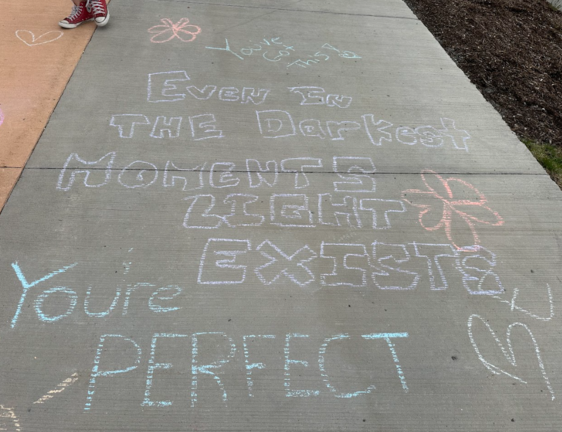 You've
Got
This
Even In
THE Darkest
MOMENTS
LIGHT
EXISTS
You're
PERFECT